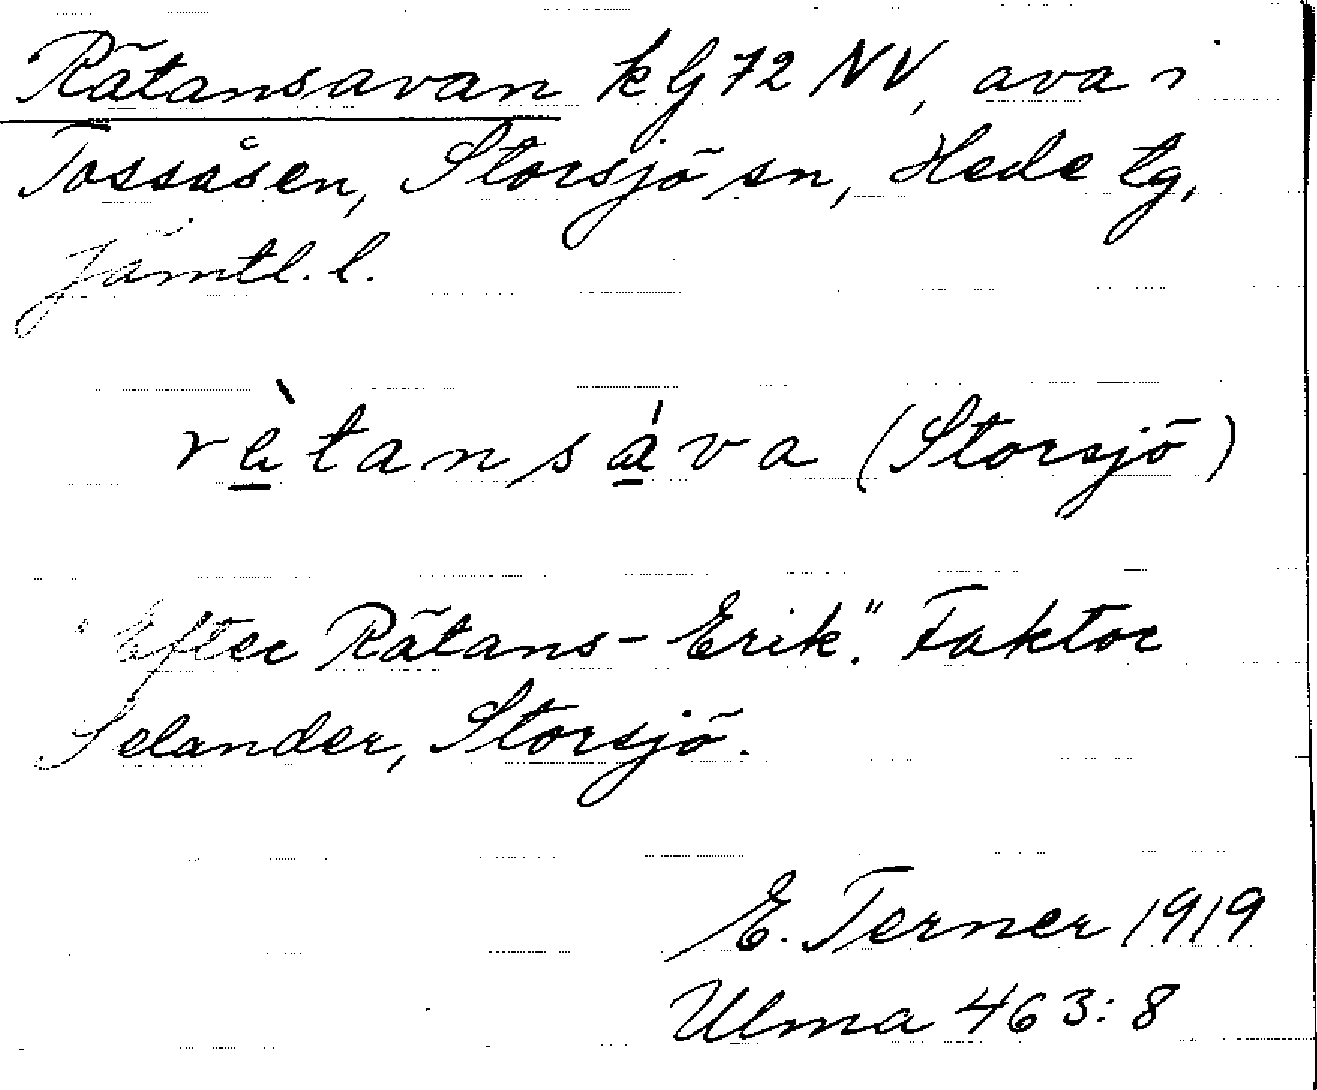 Rätansavan kbj 72 NV, ava i
Tossåsen, Storsjö sn, Hede tg,
Jämtl. l.
tansáva (Storsjö)
"Efter Rätans-Erik". Faktor
Selander, Storsjö.
E. Terner 1919
Ulma 463:8